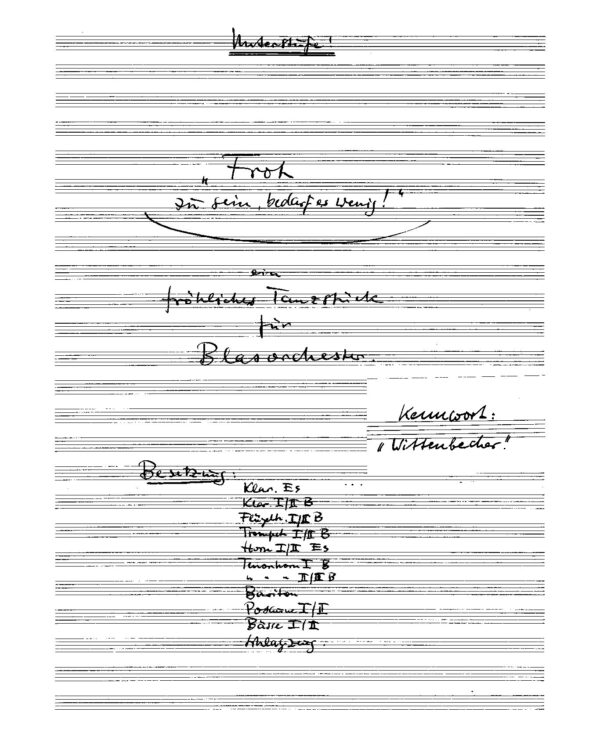 Unterstufe!
„Froh
zu sein, bedarf es wenig!“
ein
fröhliches Tanzstück
für
Blasorchester.
Kennwort:
„Wittenbecher.“
Besetzung:
Klar. Es
Klar. I/II B
Flügelh. I/II B
Trompete I/II B
Horn I/II Es
Tenorhorn I B
" - - II/III B
Bariton
Posaune I/II
Bässe I/II
Schlagzeug.